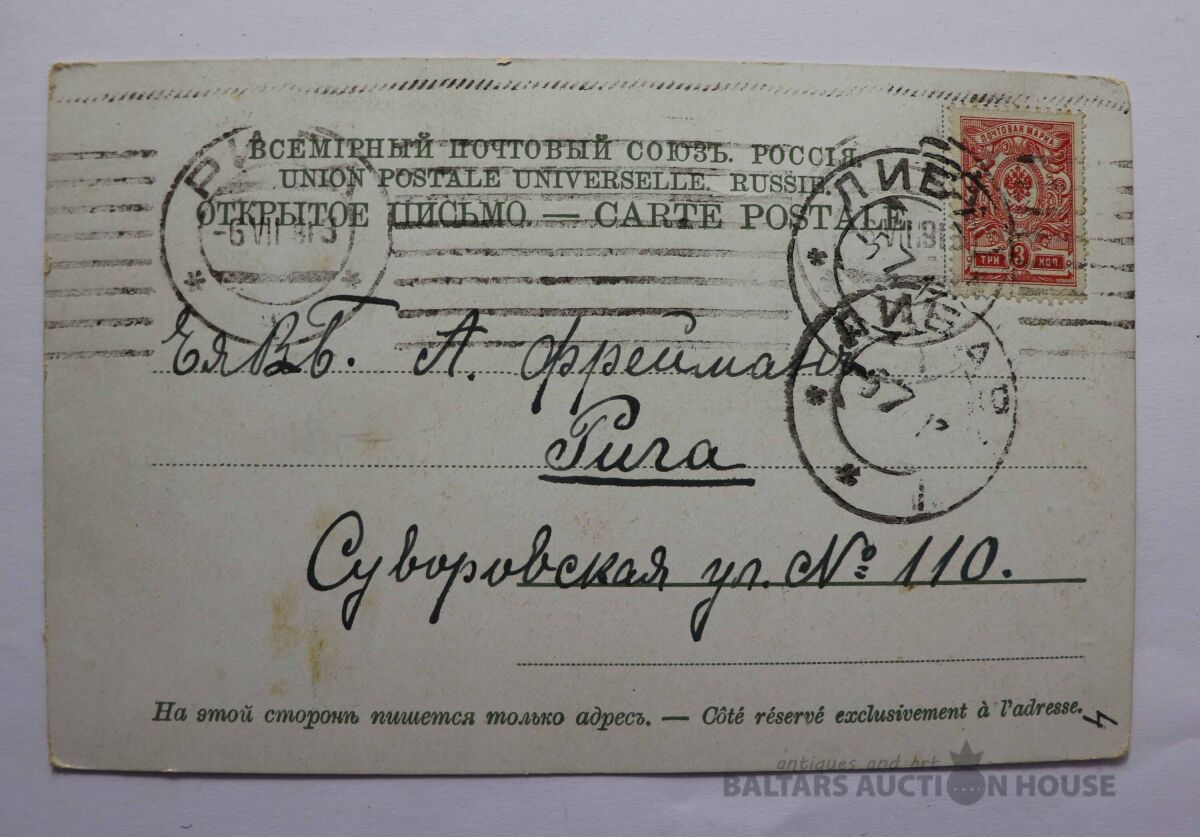 ВСЕМІРНЫЙ ПОЧТОВЫЙ СОЮЗЪ. РОССІЯ
UNION POSTALE UNIVERSELLE. RUSSIE
ОТКРЫТОЕ ПИСЬМО. — CARTE POSTALE
ПОЧТОВАЯ МАРКА
3
ТРИ КОП.
РИГА
-6 VII 913
ЛИБАВА
ЛИБАВА
ЕяВб. А. Фрейманъ
Рига
Суворовская ул. № 110.
На этой сторонѣ пишется только адресъ. — Côté réservé exclusivement à l'adresse.
4
antiques and art
BALTARS AUCTION HOUSE